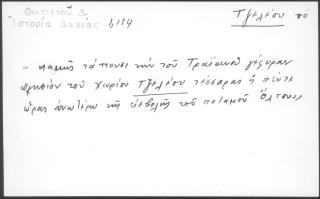 Φωτεινού Δ.
Ιστορία Δακίας 1,134
Τζελέου
τὴν τοῦ Τραϊανοῦ γέφυραν
πλησίον τοῦ χωρίου Τζελέου τέσσαρας ἢ πέντε
ὥρας ἀνωτέρω τῆς εἰσβολῆς τοῦ ποταμοῦ Ὄλτου»